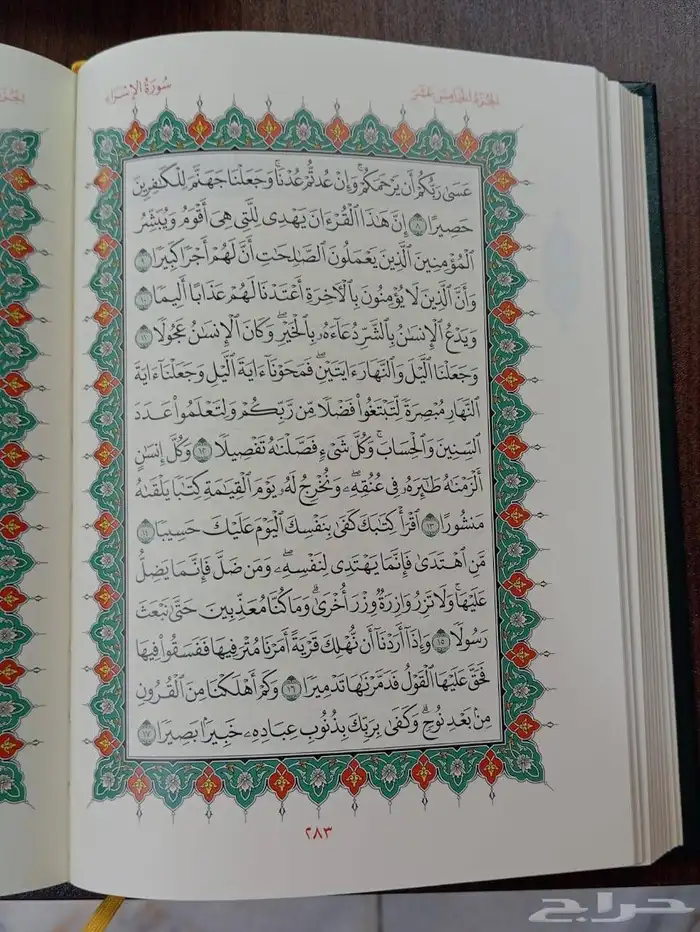 سُورَةُ الإِسْرَاءِ
الجُزْءُ الخَامِسَ عَشَرَ
عَسَىٰ رَبُّكُمْ أَن يَرْحَمَكُمْ ۚ وَإِنْ عُدتُّمْ عُدْنَا ۘ وَجَعَلْنَا جَهَنَّمَ لِلْكَٰفِرِينَ
حَصِيرًا ٨ إِنَّ هَٰذَا ٱلْقُرْءَانَ يَهْدِى لِلَّتِى هِىَ أَقْوَمُ وَيُبَشِّرُ
ٱلْمُؤْمِنِينَ ٱلَّذِينَ يَعْمَلُونَ ٱلصَّٰلِحَٰتِ أَنَّ لَهُمْ أَجْرًا كَبِيرًا ٩
وَأَنَّ ٱلَّذِينَ لَا يُؤْمِنُونَ بِٱلْءَاخِرَةِ أَعْتَدْنَا لَهُمْ عَذَابًا أَلِيمًا ١٠
وَيَدْعُ ٱلْإِنسَٰنُ بِٱلشَّرِّ دُعَآءَهُۥ بِٱلْخَيْرِ ۖ وَكَانَ ٱلْإِنسَٰنُ عَجُولًا ١١
وَجَعَلْنَا ٱلَّيْلَ وَٱلنَّهَارَ ءَايَتَيْنِ ۖ فَمَحَوْنَآ ءَايَةَ ٱلَّيْلِ وَجَعَلْنَآ ءَايَةَ
ٱلنَّهَارِ مُبْصِرَةً لِّتَبْتَغُوا۟ فَضْلًا مِّن رَّبِّكُمْ وَلِتَعْلَمُوا۟ عَدَدَ
ٱلسِّنِينَ وَٱلْحِسَابَ ۚ وَكُلَّ شَىْءٍ فَصَّلْنَٰهُ تَفْصِيلًا ١٢ وَكُلَّ إِنسَٰنٍ
أَلْزَمْنَٰهُ طَٰٓئِرَهُۥ فِى عُنُقِهِۦ ۖ وَنُخْرِجُ لَهُۥ يَوْمَ ٱلْقِيَٰمَةِ كِتَٰبًا يَلْقَىٰهُ
مَنشُورًا ١٣ ٱقْرَأْ كِتَٰبَكَ كَفَىٰ بِنَفْسِكَ ٱلْيَوْمَ عَلَيْكَ حَسِيبًا ١٤
مَّنِ ٱهْتَدَىٰ فَإِنَّمَا يَهْتَدِى لِنَفْسِهِۦ ۖ وَمَن ضَلَّ فَإِنَّمَا يَضِلُّ
عَلَيْهَا ۚ وَلَا تَزِرُ وَازِرَةٌ وِزْرَ أُخْرَىٰ ۗ وَمَا كُنَّا مُعَذِّبِينَ حَتَّىٰ نَبْعَثَ
رَسُولًا ١٥ وَإِذَآ أَرَدْنَآ أَن نُّهْلِكَ قَرْيَةً أَمَرْنَا مُتْرَفِيهَا فَفَسَقُوا۟ فِيهَا
فَحَقَّ عَلَيْهَا ٱلْقَوْلُ فَدَمَّرْنَٰهَا تَدْمِيرًا ١٦ وَكَمْ أَهْلَكْنَا مِنَ ٱلْقُرُونِ
مِنۢ بَعْدِ نُوحٍ ۗ وَكَفَىٰ بِرَبِّكَ بِذُنُوبِ عِبَادِهِۦ خَبِيرًۢا بَصِيرًا ١٧
٢٨٣
حراج